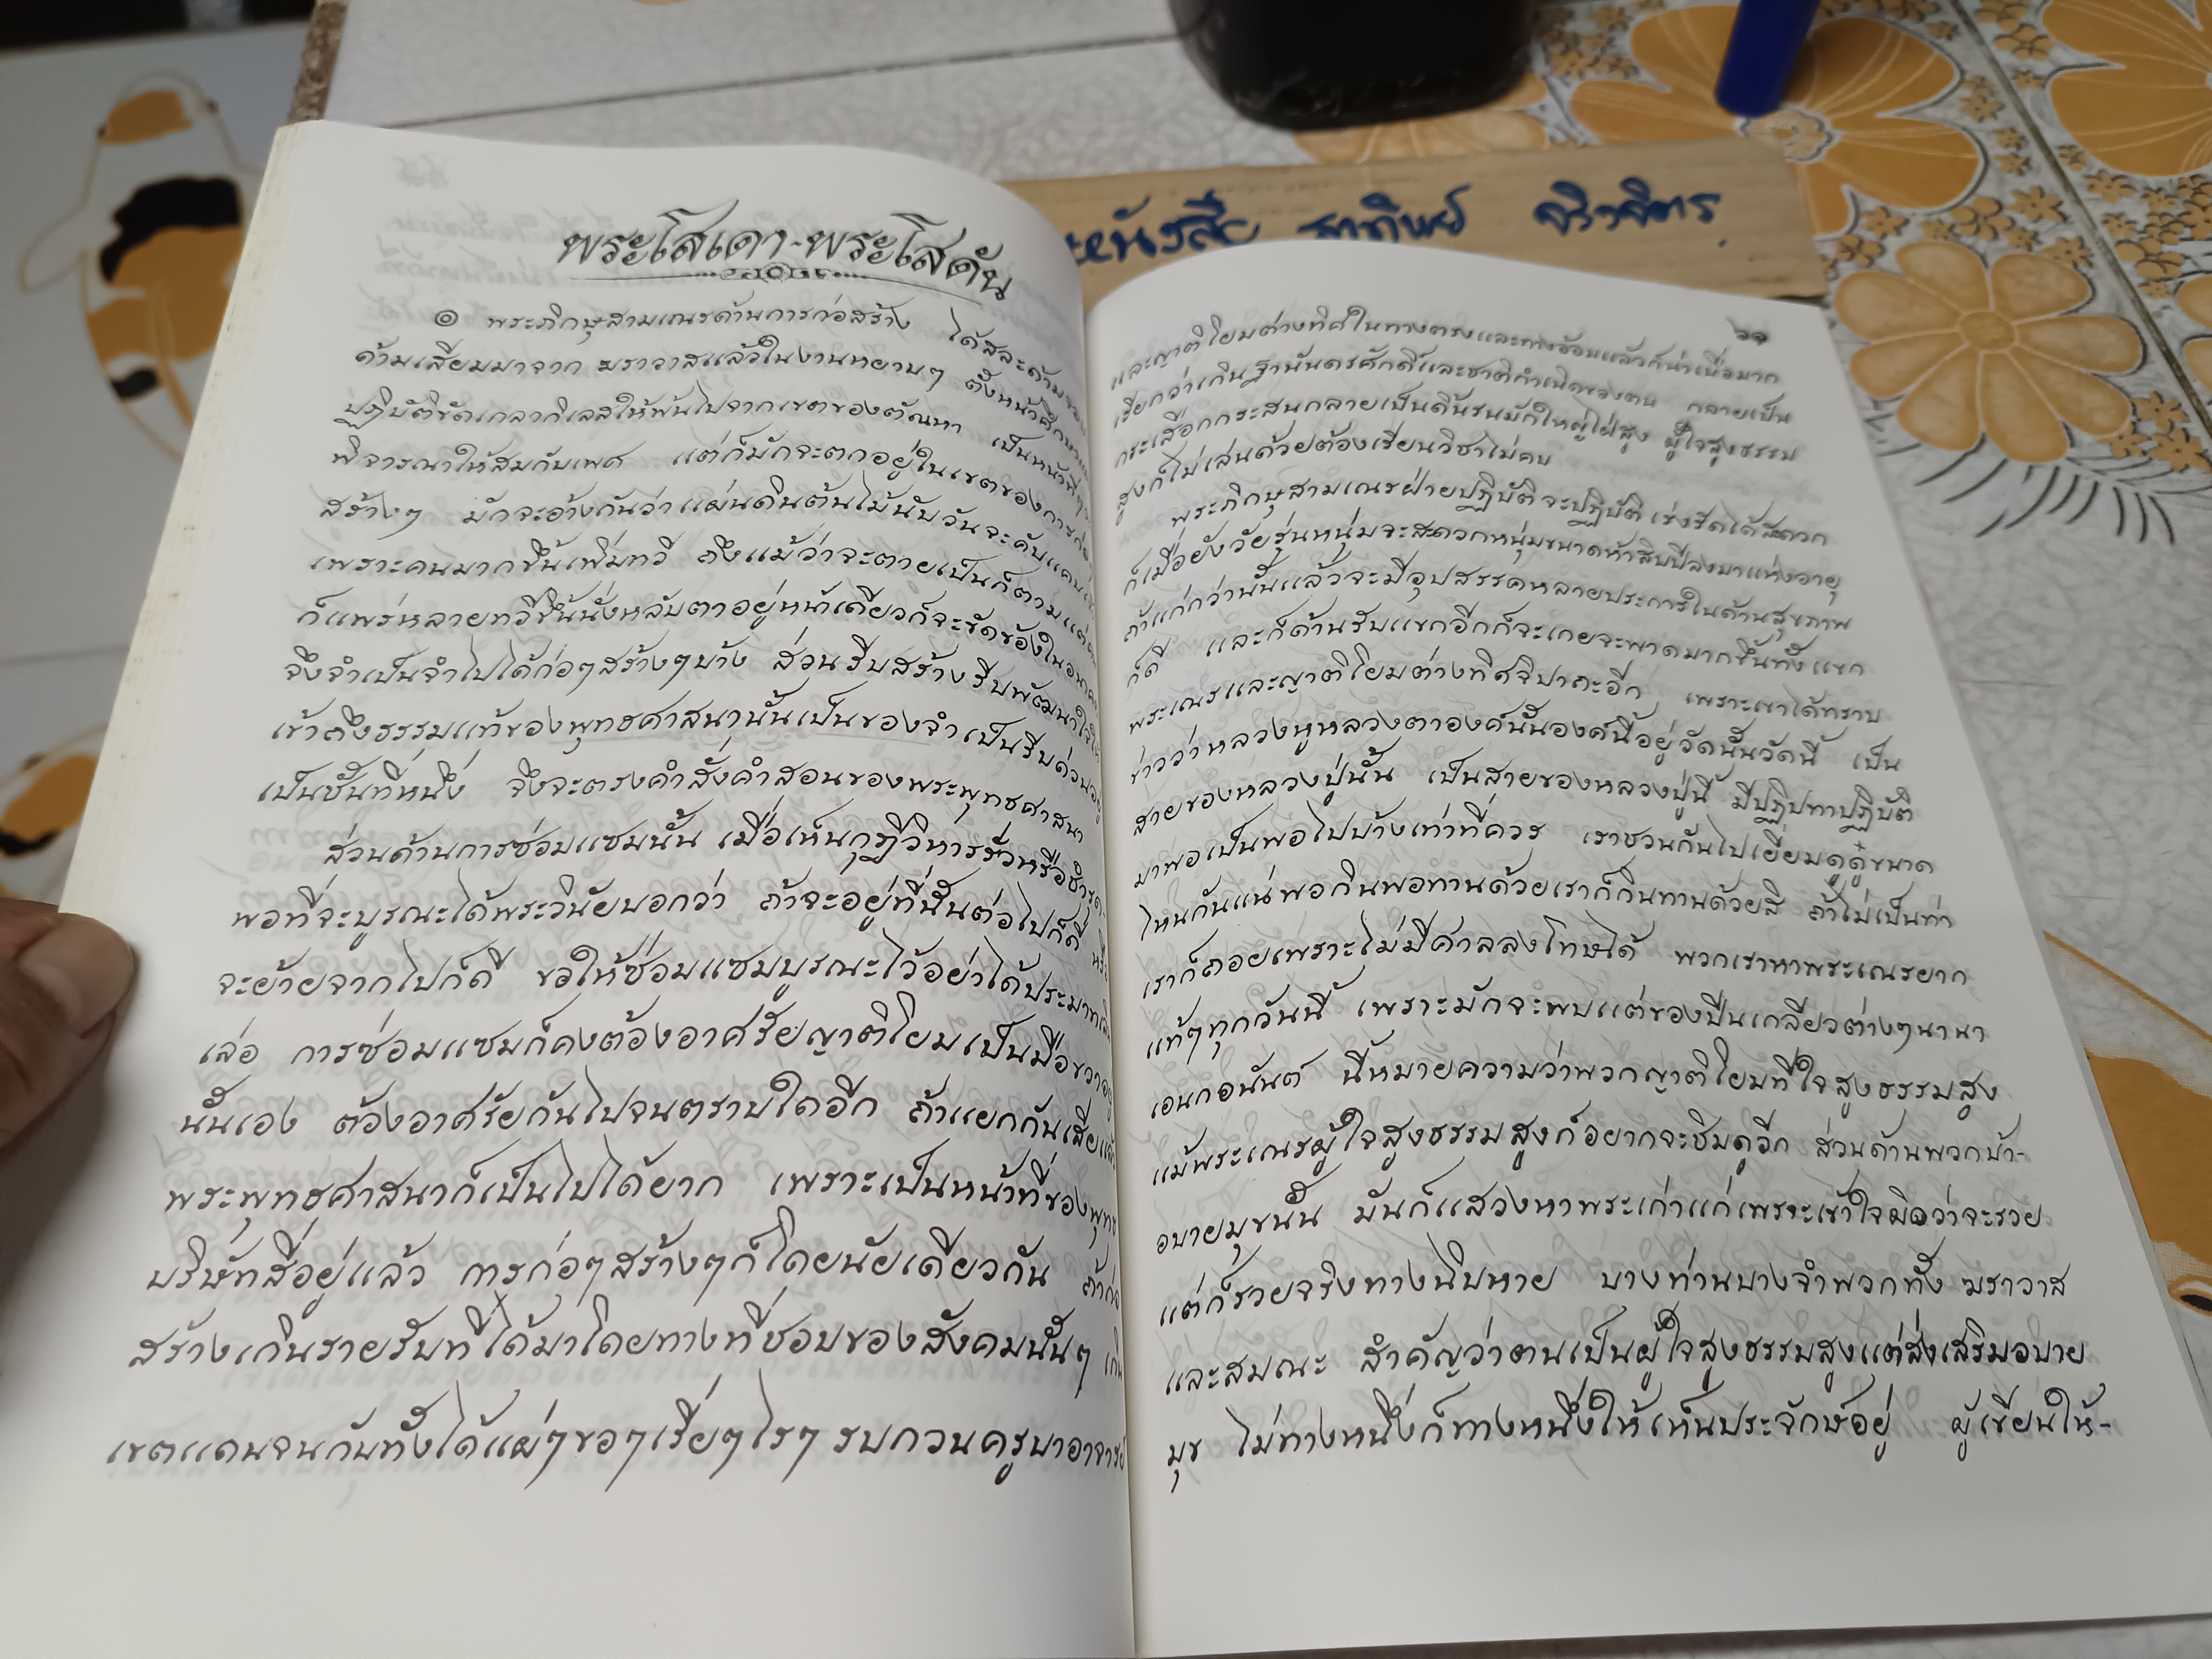 พระโสเดา-พระโสดัน
๑ พระภิกษุสามเณรด้านการก่อสร้าง ได้สละด้ามจอบ
ด้ามเสียมมาจาก ฆราวาสแล้วในงานหยาบๆ ตั้งหน้าศึกษาและ
ปฏิบัติขัดเกลากิเลสให้พ้นไปจากเขตของตัณหา เป็นหน้าที่
พิจารณาให้สมกับเพศ แต่ก็มักจะตกอยู่ในเขตของการก่อ
สร้างๆ มักจะอ้างกันว่าแผ่นดินต้นไม้นับวันจะคับแคบ
เพราะคนมากขึ้นเพิ่มทวี ถึงแม้ว่าจะตายเป็นก็ตามแต่
ก็แพร่หลายทวีขึ้นนั่งหลับตาอยู่หน้าเดียวก็จะขัดข้องใน
จึงจำเป็นจำไปได้ก่อๆสร้างๆบ้าง ส่วนรีบสร้างรีบพัฒนาใจให้
เข้าถึงธรรมแท้ของพุทธศาสนานั้นเป็นของจำเป็นรีบด่วนอยู่
เป็นชั้นที่หนึ่ง จึงจะตรงคำสั่งคำสอนของพระพุทธศาสนา
ส่วนด้านการซ่อมแซมนั้น เมื่อเห็นกุฏีวิหารรั่วหรือชำรุด
พอที่จะบูรณะได้พระวินัยบอกว่า ถ้าจะอยู่ที่นั้นต่อไปก็ดี หรือ
จะย้ายจากไปก็ดี ขอให้ซ่อมแซมบูรณะไว้อย่าได้ประมาท
เล่อ การซ่อมแซมก็คงต้องอาศรัยญาติโยมเป็นมือขวาอยู่
นั้นเอง ต้องอาศรัยกันไปจนตราบใดอีก ถ้าแยกกันเสียแล้ว
พระพุทธศาสนาก็เป็นไปได้ยาก เพราะเป็นหน้าที่ของพุทธ
บริษัทสี่อยู่แล้ว การก่อๆสร้างๆก็โดยนัยเดียวกัน ถ้าก่อ
สร้างเกินรายรับที่ได้มาโดยทางที่ชอบของสังคมนั้นๆ เกิน
เขตแดนจนกับทั้งได้แผ่ๆขอๆเรี่ยๆไรๆ รบกวนครูบาอาจารย์
๖๑
และญาติโยมต่างทิศในทางตรงและทางอ้อมแล้วก็น่าเบื่อมาก
เรียกว่าเกินฐานันดรศักดิ์และชาติกำเนิดของตน กลายเป็น
กระเสือกกระสนกลายเป็นดิ้นรนมักใหญ่ใฝ่สูง ผู้ใจสูงธรรม
สูงก็ไม่เล่นด้วยต้องเรียนวิชาไม่คบ
พระภิกษุสามเณรฝ่ายปฏิบัติจะปฏิบัติเร่งรัดได้สะดวก
ก็เมื่อยังวัยรุ่นหนุ่มจะสะดวกหนุ่มขนาดห้าสิบปีลงมาแห่งอายุ
ถ้าแก่กว่านั้นแล้วจะมีอุปสรรคหลายประการในด้านสุขภาพ
ก็ดี และก็ด้านรับแขกอีกก็จะเกยจะพาดมากขึ้นทั้งแขก
พระเณรและญาติโยมต่างทิศจิปาถะอีก เพราะเขาได้ทราบ
ข่าวว่าหลวงหูหลวงตาองค์นั้นองค์นี้อยู่วัดนั้นวัดนี้ เป็น
สายของหลวงปู่นั้น เป็นสายของหลวงปู่นี้ มีปฏิปทาปฏิบัติ
มาพอเป็นพอไปบ้างเท่าที่ควร เราชวนกันไปเยี่ยมดูดู๋ขนาด
ไหนกันแน่พอกินพอทานด้วยเราก็กินทานด้วยสิ ถ้าไม่เป็นท่า
เราก็ถอยเพราะไม่มีศาลลงโทษได้ พวกเราหาพระเณรยาก
แท้ๆทุกวันนี้ เพราะมักจะพบแต่ของปีนเกลียวต่างๆนานา
เอนกอนันต์ นี้หมายความว่าพวกญาติโยมที่ใจสูงธรรมสูง
แม้พระเณรผู้ใจสูงธรรมสูงก็อยากจะชิมดูอีก ส่วนด้านพวกบ้า-
อบายมุขนั้น มันก็แสวงหาพระเก่าแก่เพราะเข้าใจผิดว่าจะรวย
แต่ก็รวยจริงทางฉิบหาย บางท่านบางจำพวกทั้ง ฆราวาส
และสมณะ สำคัญว่าตนเป็นผู้ใจสูงธรรมสูงแต่ส่งเสริมอบาย
มุข ไม่ทางหนึ่งก็ทางหนึ่งให้เห็นประจักษ์อยู่ ผู้เขียนให้-